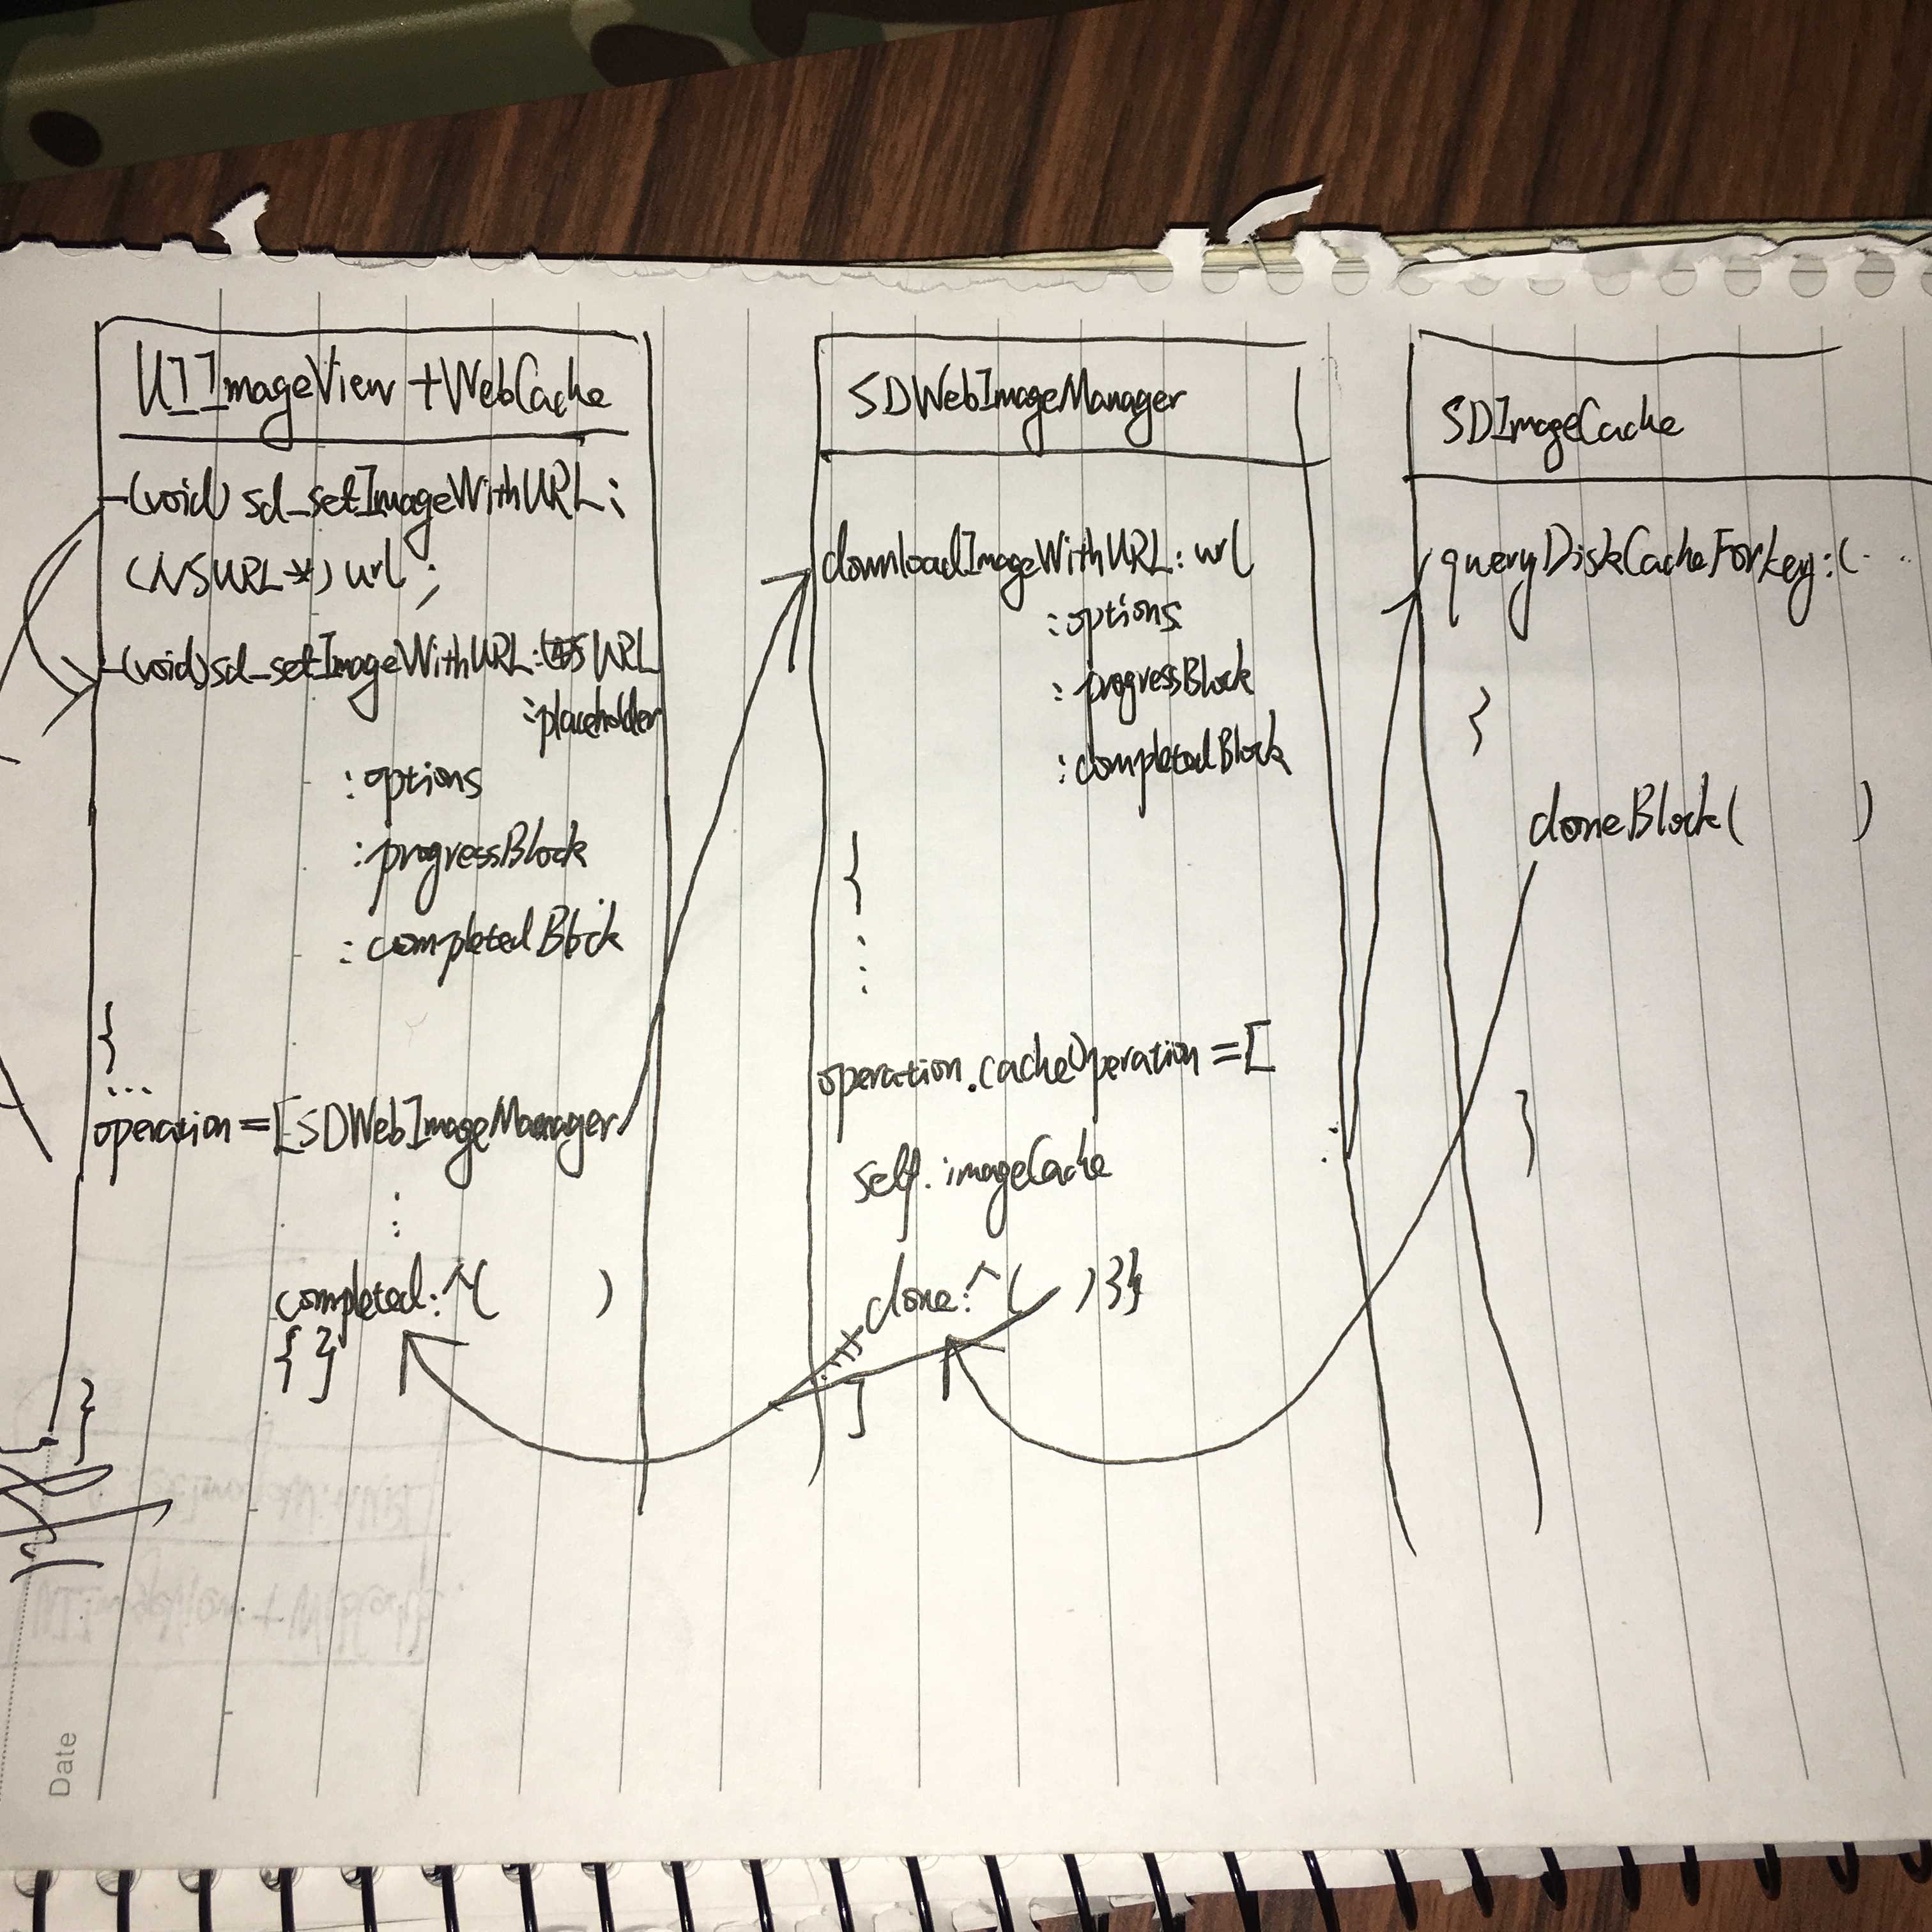 UIImageView +WebCache
-(void) sd_setImageWithURL:
(NSURL*) url ;
-(void)sd_setImageWithURL: URL
:placeholder
:options
:progressBlock
:completedBlock
{
...
operation=[SDWebImageManager
⋮
completed:^( )
{ }
}
SDWebImageManager
downloadImageWithURL: url
:options
:progressBlock
:completedBlock
{
⋮
operation.cacheOperation =[
self.imageCache
done:^( ){}
]
SDImageCache
queryDiskCacheForKey:(...
{
doneBlock( )
}
Date